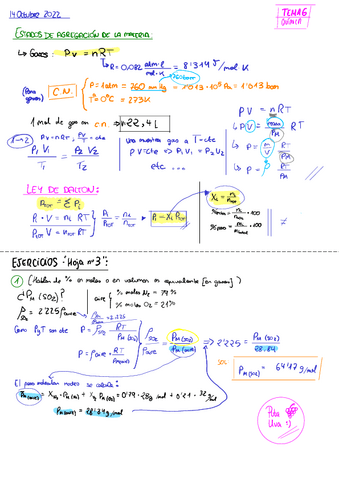 14 Octubre 2022
TEMA 6
QUÍMICA
ESTADOS DE AGREGACIÓN DE LA MATERIA:
↳ Gases: PV = nRT
R = 0.082 atm·l / mol·K = 8'314 J/mol K
C.N.
P = 1 atm = 760 mm Hg = 1'013·10⁵ Pa = 1'013 bar
Tª = 0ºC = 273 K
1 mol de gas en C.N. → 22,4 L
P V = n R T
P V = masa/PM R T
P₁ V₁ / T₁ = P₂ V₂ / T₂
Una muestra gas a T = cte
PV = cte ⇒ P₁V₁ = P₂V₂
etc ...
LEY DE DALTON:
P TOT = Σ Pᵢ
Pᵢ · V = nᵢ RT
P TOT V = n TOT RT
Pᵢ / P TOT = nᵢ / n TOT
Pᵢ = Xᵢ P TOT
Xᵢ = nᵢ / n TOT
≠
EJERCICIOS "Hoja nº3":
1 (Hablar de % en moles o en volumen es equivalente [en gases])
¿PM (SO₂)?
aire
% moles N₂ = 79 %
% moles O₂ = 21%
Como P y T son cte
⇒ 2'225 = PM (SO₂) / 28.84
PM (SO₂) = 64'17 g/mol
El peso molecular medio se calcula:
PM (aire) = X N₂ · PM (N₂) + X O₂ PM (O₂) = 0'79 · 28 g/mol + 0'21 · 32 g/mol
PM (aire) = 28'84 g/mol